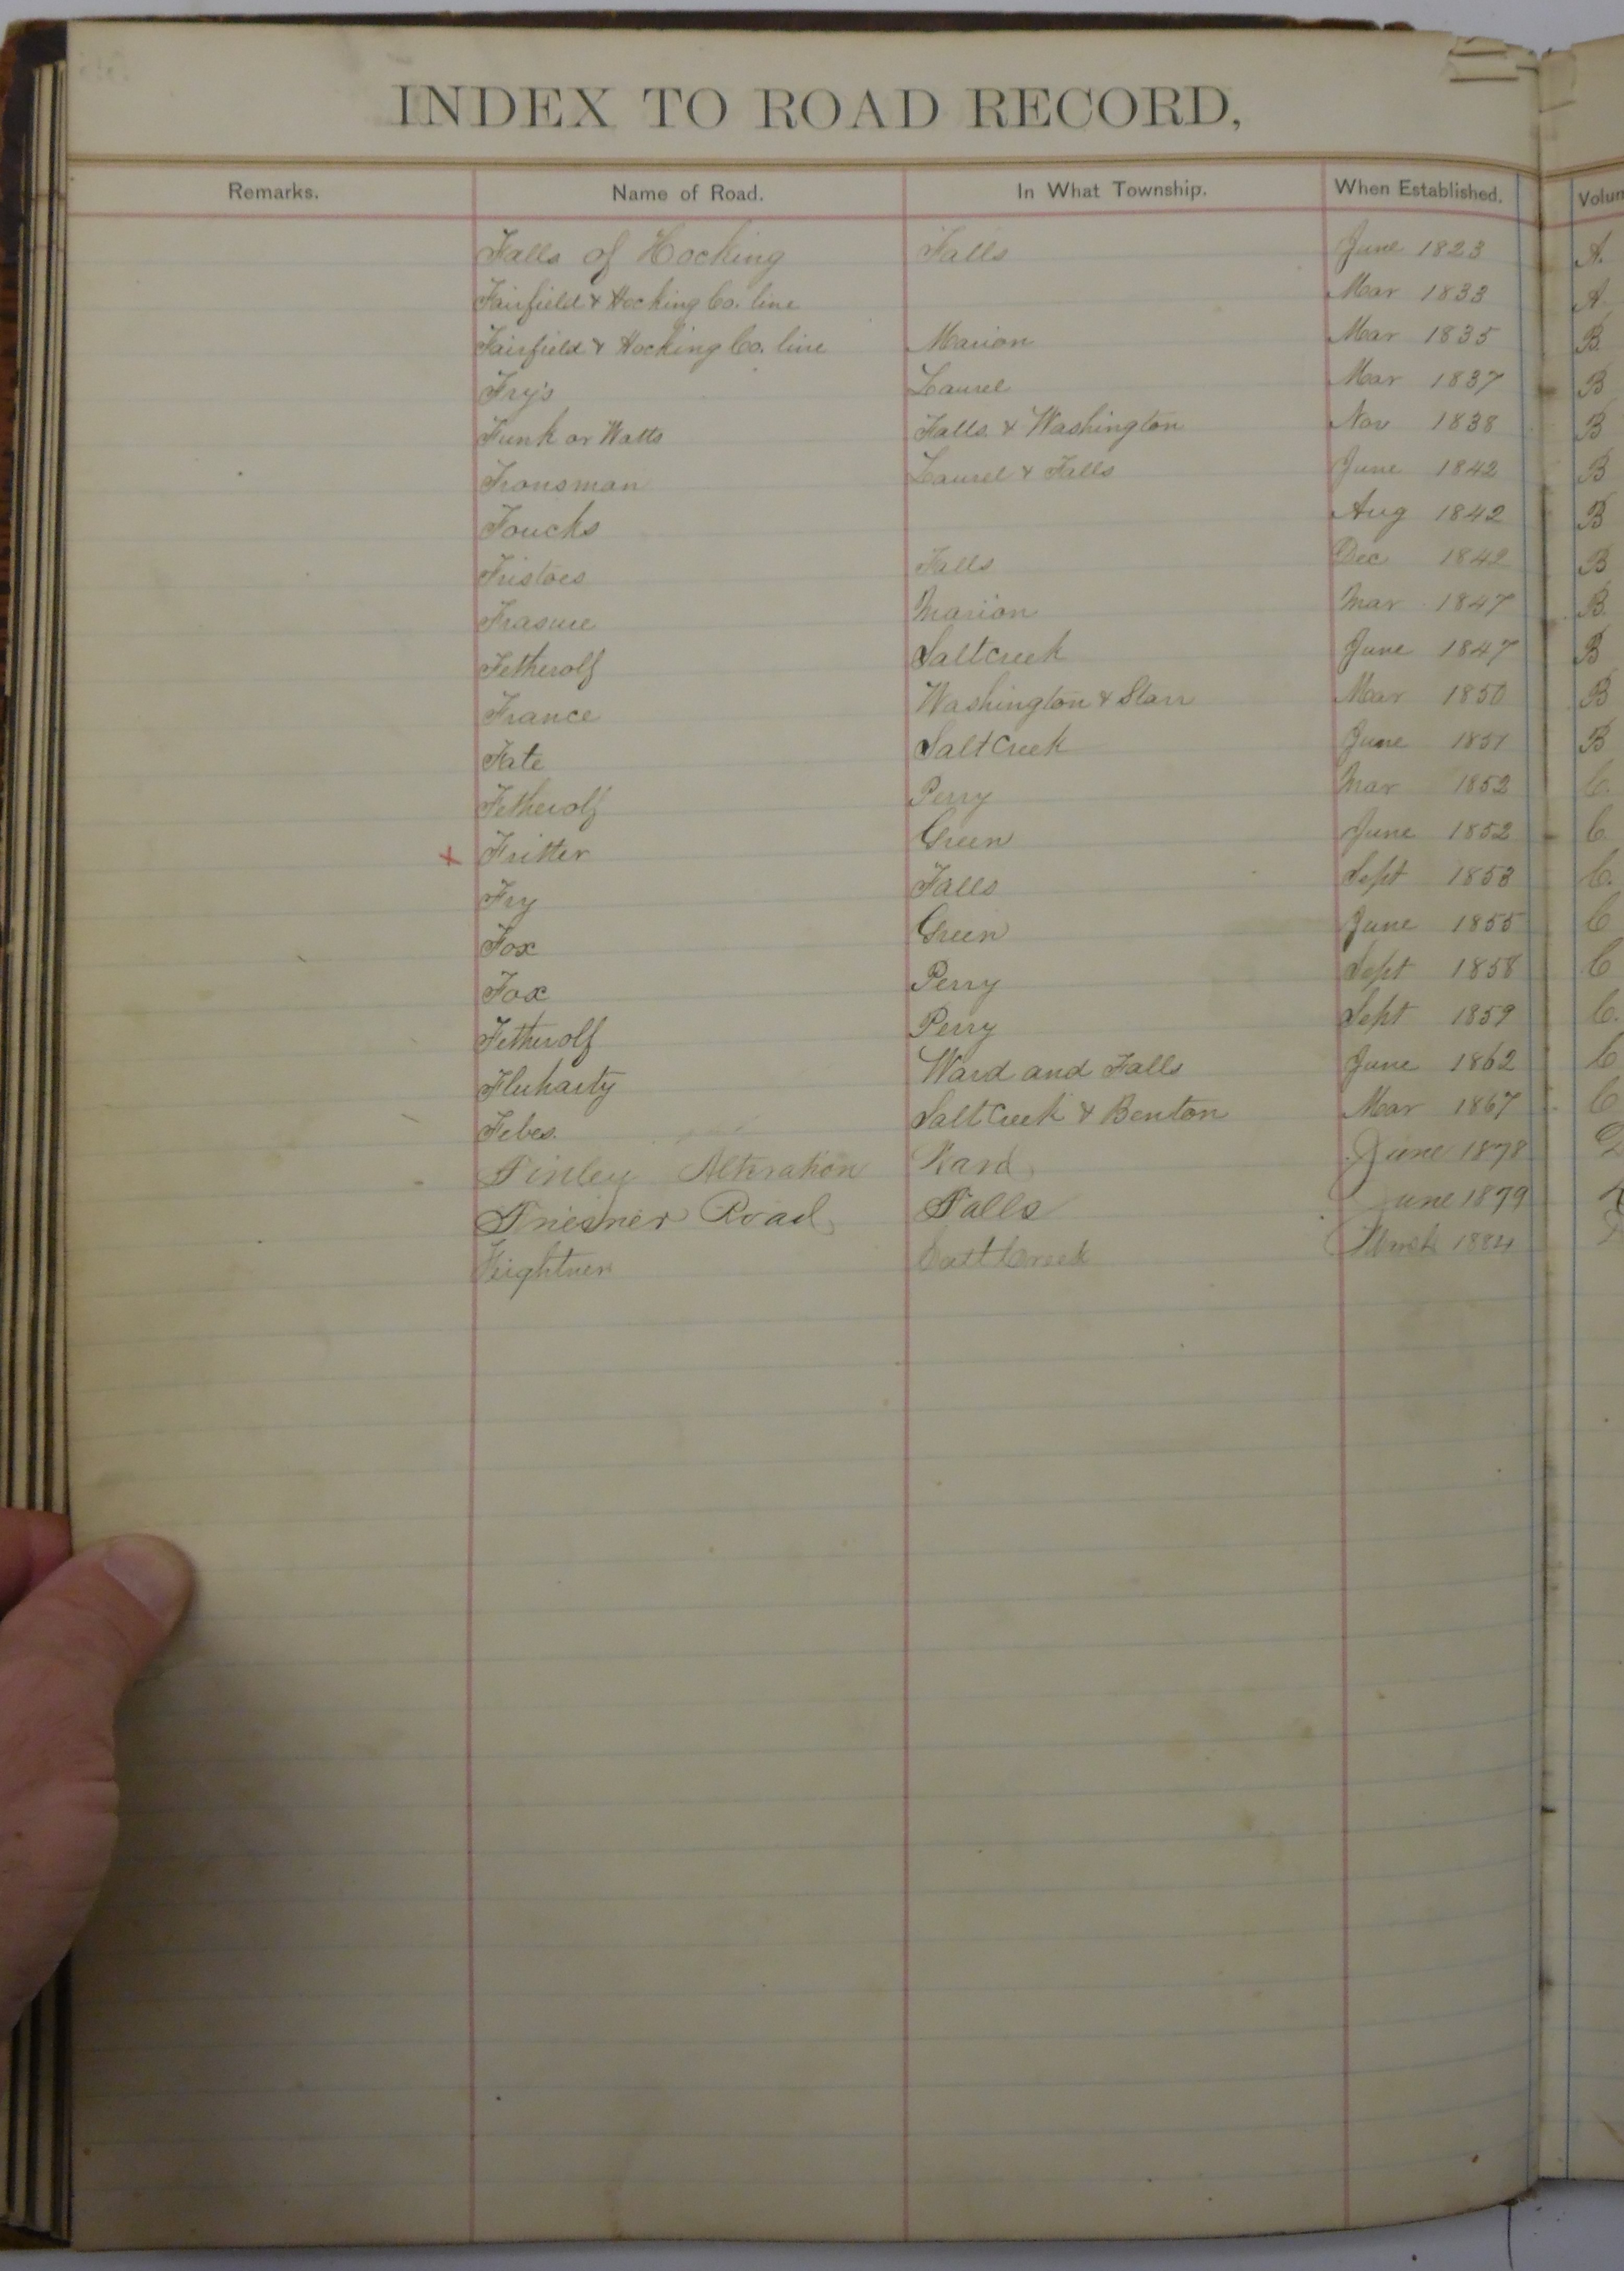 INDEX TO ROAD RECORD,
Remarks. Name of Road. In What Township. When Established. Volum
Falls of Hocking Falls June 1823 A.
Fairfield & Hocking Co. line Mar 1833 A
Fairfield & Hocking Co. line Marion Mar 1835 B.
Fry's Laurel Mar 1837 B
Funk or Watts Falls & Washington Nov 1838 B
Fronsman Laurel & Falls June 1842 B
Foucks Aug 1842 B
Fristoes Falls Dec 1842 B
Frasure Marion Mar 1847 B.
Fetherolf Saltcreek June 1847 B
France Washington & Starr Mar 1850 B
Fate Salt Creek June 1851 B
Fetherolf Perry Mar 1852 C.
x Fritter Green June 1852 C
Fry Falls Sept 1853 C.
Fox Green June 1855 C
Fox Perry Sept 1858 C
Fetherolf Perry Sept 1859 C.
Fluharty Ward and Falls June 1862 C
Febes. Salt Creek & Benton Mar 1867 C
Finley Alteration Ward June 1878 D
Friesner Road Falls June 1879
Feightner Salt Creek March 1884